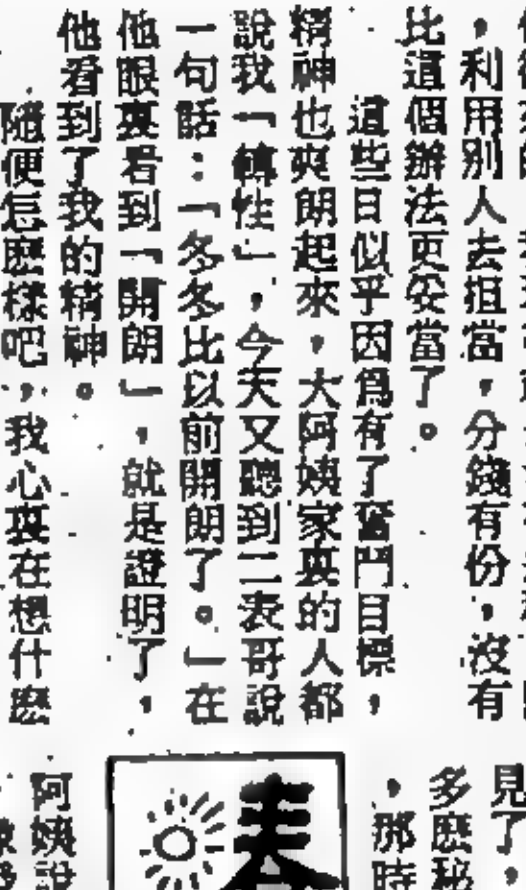 ，利用別人去担當，分錢有份，沒有
比這個辦法更妥當了。
這些日似乎因爲有了奮鬥目標，
精神也爽朗起來，大阿姨家裏的人都
說我「轉性」，今天又聽到二表哥說
一句話：「冬冬比以前開朗了。」在
他眼裏看到「開朗」，就是證明了，
他看到了我的精神。
隨便怎麽樣吧，我心裏在想什麽
見了，
多麽秘
，那時
春
阿姨說